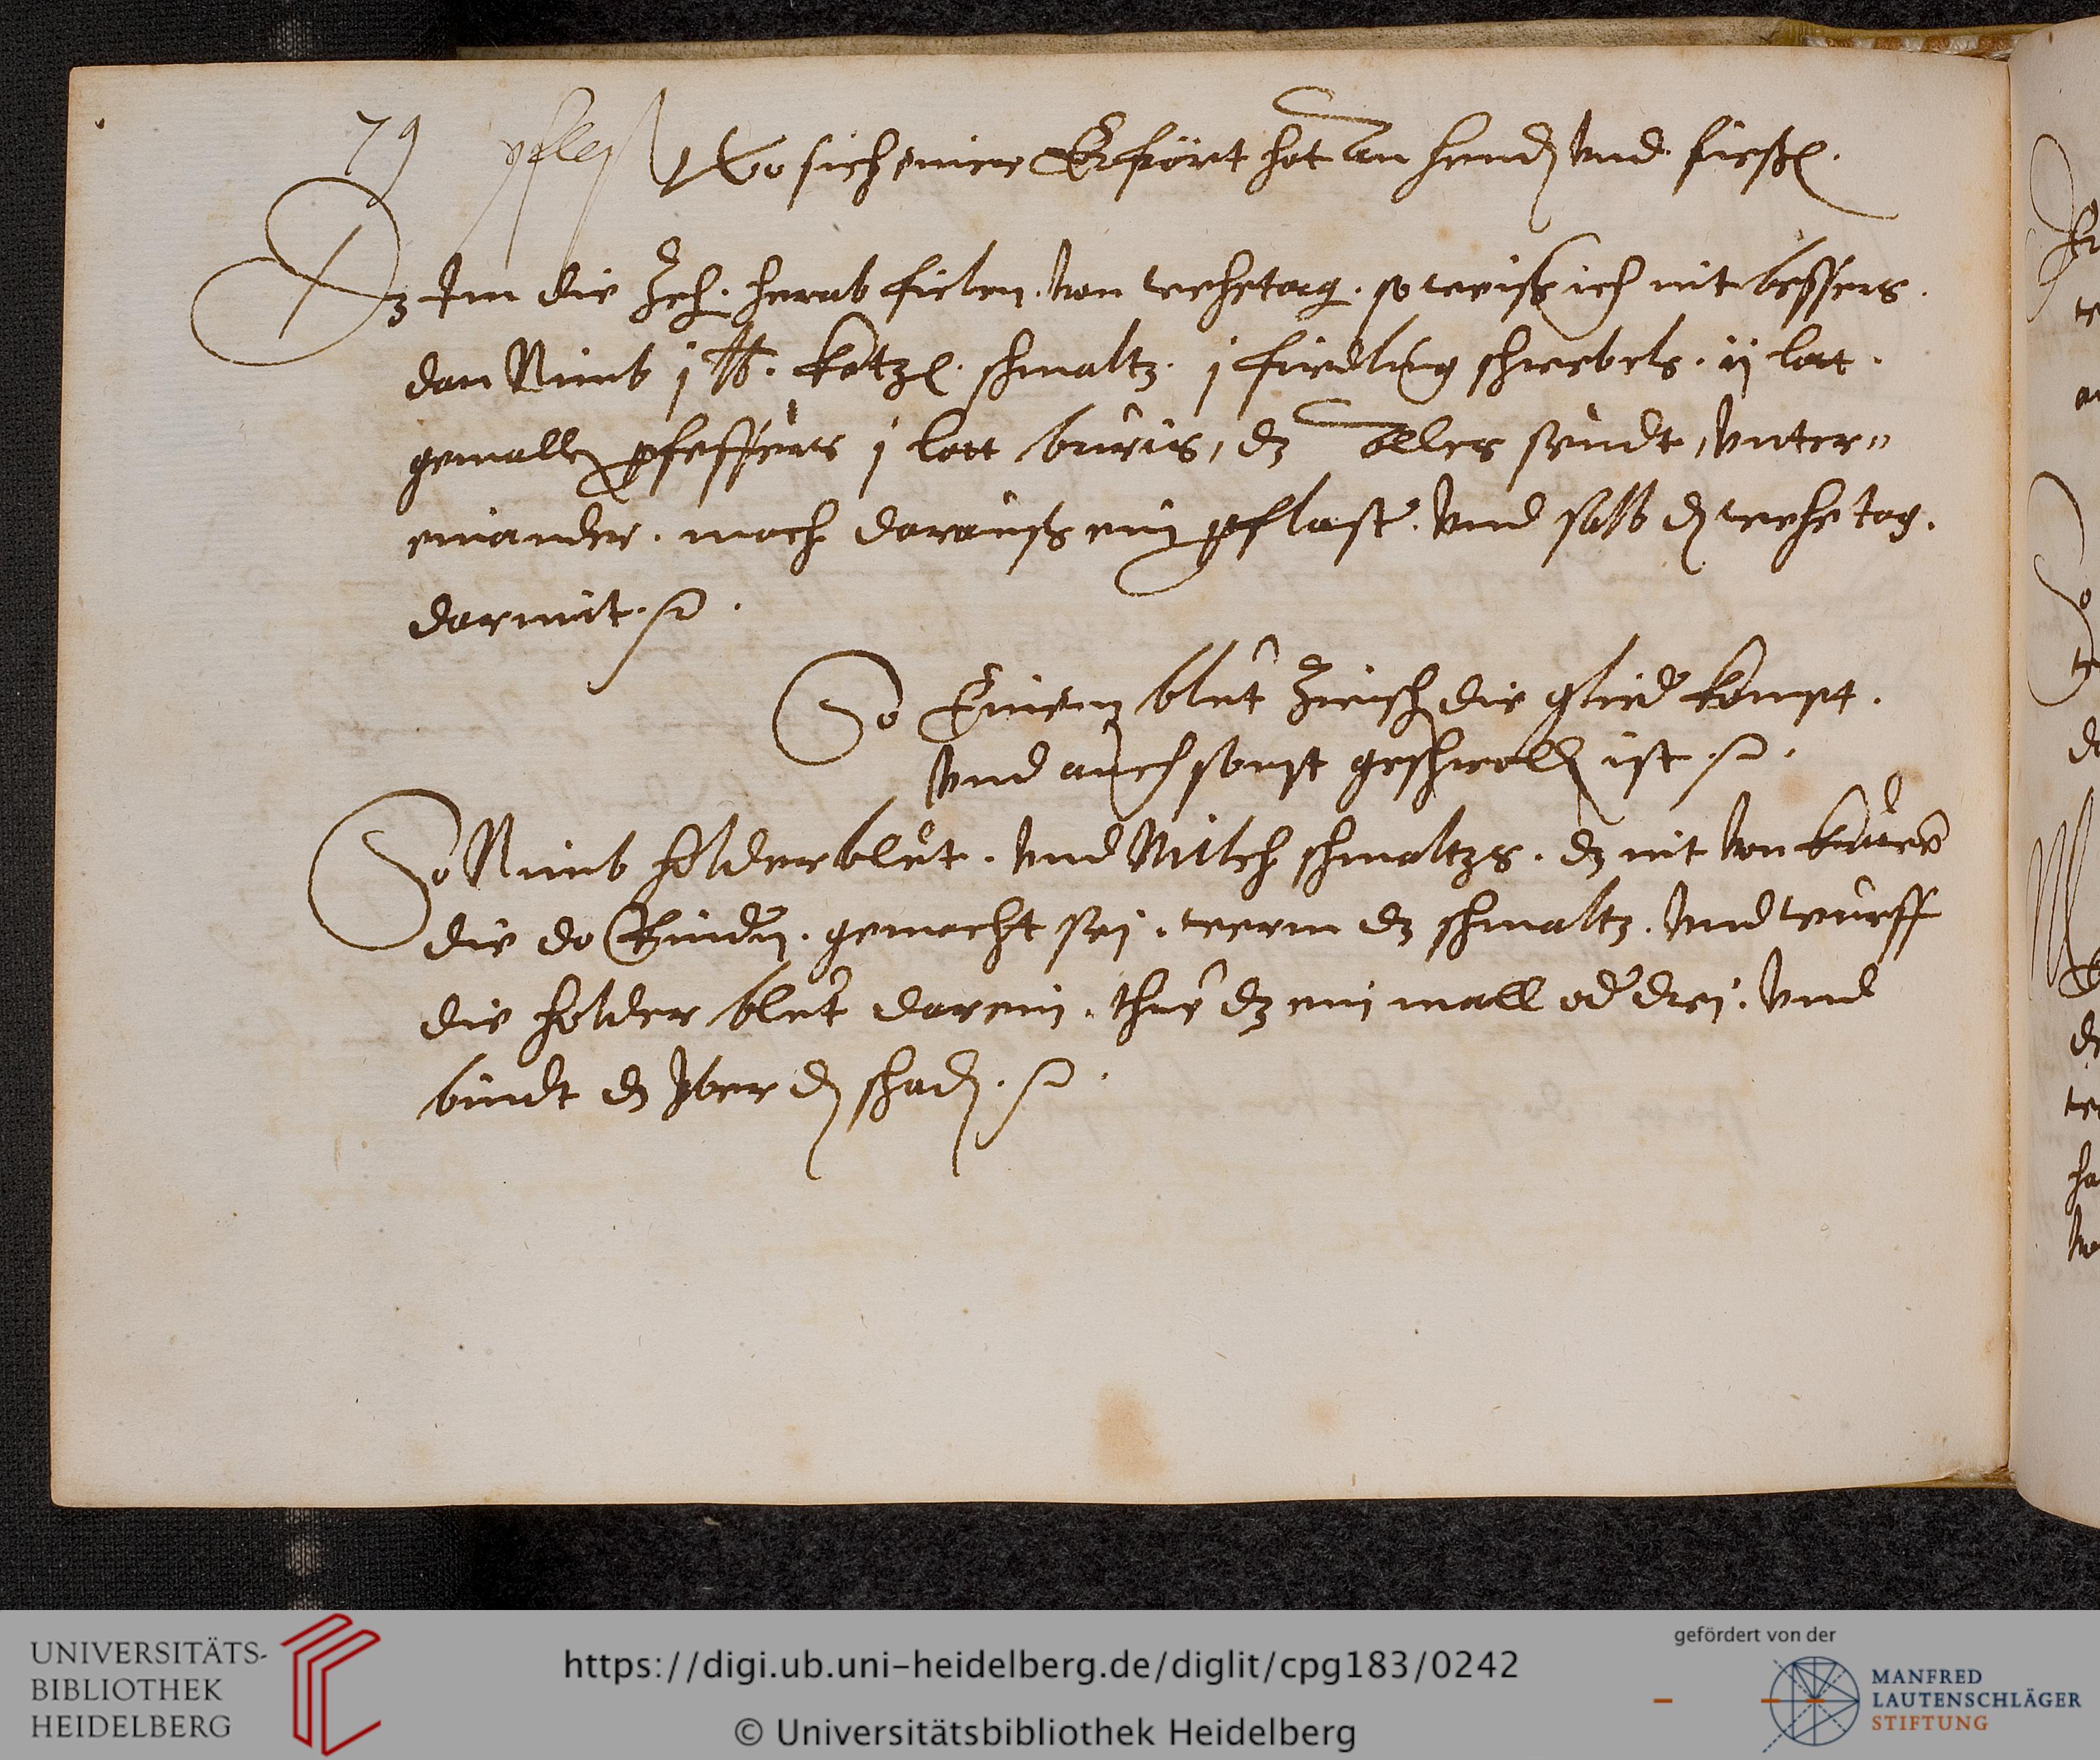 79 Wo sich einer Erfört hat an hend und fiessen.
Dz Im die Zeh. herab fielen. von wehetag. so weiß ich nit bessers.
dan Nimb j ℔. katzen. schmaltz. j firdling schwebels. ij lott.
gemallen pfeffers j lott , dz alles seudt, unter„
einander. mach darauß ein pflaster. Und salb den wehe tag.
darmit.
So Einem blut Zwisch die glider kompt.
Und auch sonst geschwollen ist.
So Nimb holderblut. und Milch schmaltzs. dz nit von
die do. gemacht sei. werm dz schmaltz. Und wurff
die holder blut darein. thue dz ein mall oder drei. Und
bindt dz yber den schaden.
UNIVERSITÄTS-
BIBLIOTHEK
HEIDELBERG
https://digi.ub.uni-heidelberg.de/diglit/cpg183/0242
© Universitätsbibliothek Heidelberg
gefördert von der
MANFRED
LAUTENSCHLÄGER
STIFTUNG